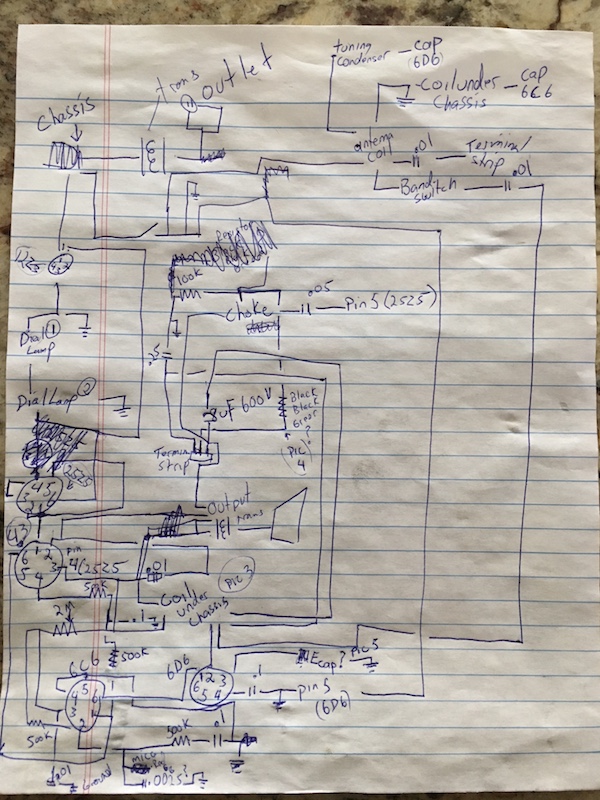 tuning
condenser — cap
(6D6)
Coil under — cap
chassis 6C6
trans
outlet
Chassis
antenna
coil
.01
Terminal
strip
Band
switch
.01
100K
Choke
.05
Pin 5 (25Z5)
Dial
Lamp
1
.25
Dial Lamp
8uF 600V
Black
Black
Green
?
Pic
4
Terminal
strip
25Z5
43
Output
trans
pin
4 (25Z5
.01
Pic 3
500K
Coil
under
chassis
.1
2M
500K
6C6
6D6
.1
E cap?
Pic 5
pin 5
(6D6)
500K
500K
.1
.01
Ground
mica
.0025?